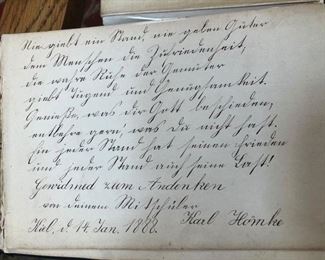 Nie giebt ein Stand, nie geben Güter
dem Menschen die Zufriedenheit,
die wahre Ruhe der Gemüter
giebt Tugend und Genügsamkeit.
Genieße, was dir Gott beschieden,
entbehre gern, was du nicht hast.
Ein jeder Stand hat seinen Frieden
und jeder Stand auch seine Last!
Gewidmed zum Andenken
von deinem Mitschüler
Karl Hömke
Kiel, d. 14. Jan. 1888.